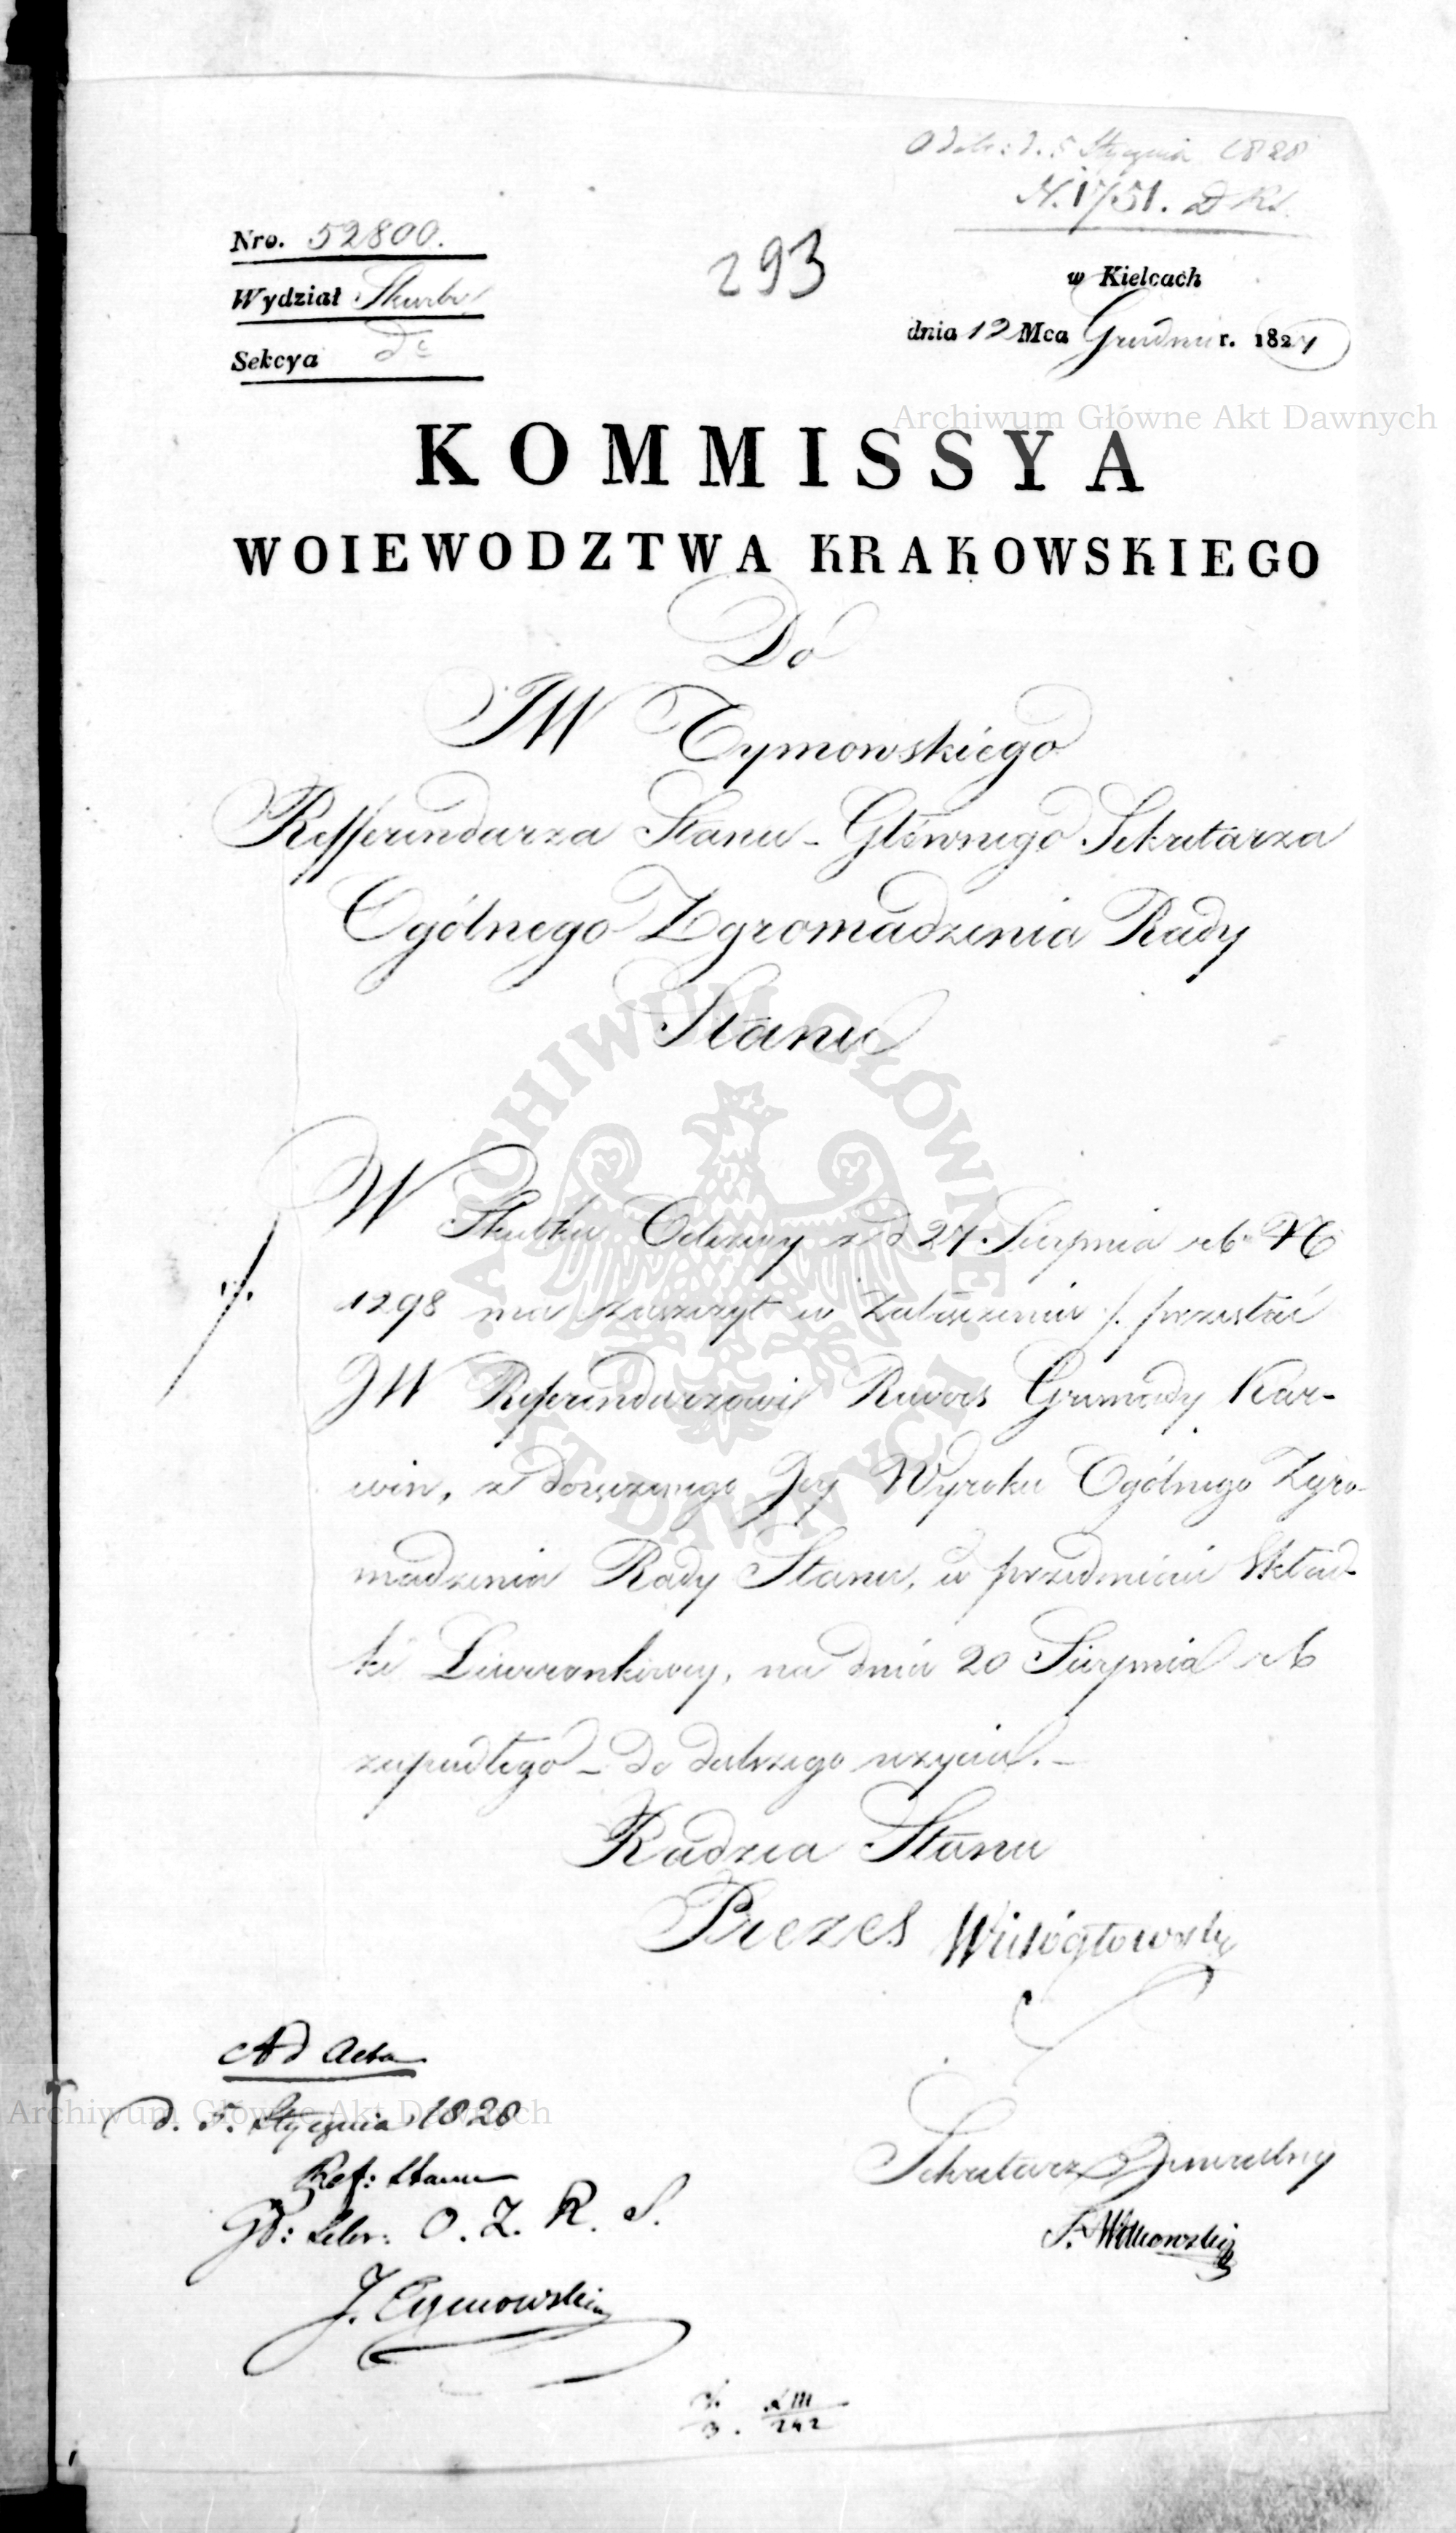 Odebr: d. 5 Stycznia 1828
N. 1751. D Kr.
Nro. 52800.
293
w Kielcach
Wydział Skarbu
dnia 12 Mca Grudnia r. 1827
Sekcya
Archiwum Główne Akt Dawnych
KOMMISSYA
WOIEWODZTWA KRAKOWSKIEGO
Do
JW Tymowskiego
Refferendarza Stanu - Głównego Sekretarza
Ogólnego Zgromadzenia Rady
Stanu
W Skutku Odezwy z d 27 Sierpnia rb. N
1298 ma zaszczyt w załączeniu /. przesłać
JW Referendarzowi Rewers Gromady Kar-
win, z doręczonego Jey Wyroku Ogólnego Zgro-
madzenia Rady Stanu, w przedmiocie Skład-
ki Liwerunkowey, na dniu 20 Sierpnia rb
zapadłego - do dalszego użycia. -
Radzca Stanu
Prezes Wielogłowski
Ad Acta
d. 5. Stycznia 1828
Archiwum Główne Akt Dawnych
Ref: Stanu
Gł: Sekr: O. Z. R. S.
J. Tymowski
Sekretarz Generalny
ARCHIWUM GŁÓWNE
AKT DAWNYCH
XIII
242